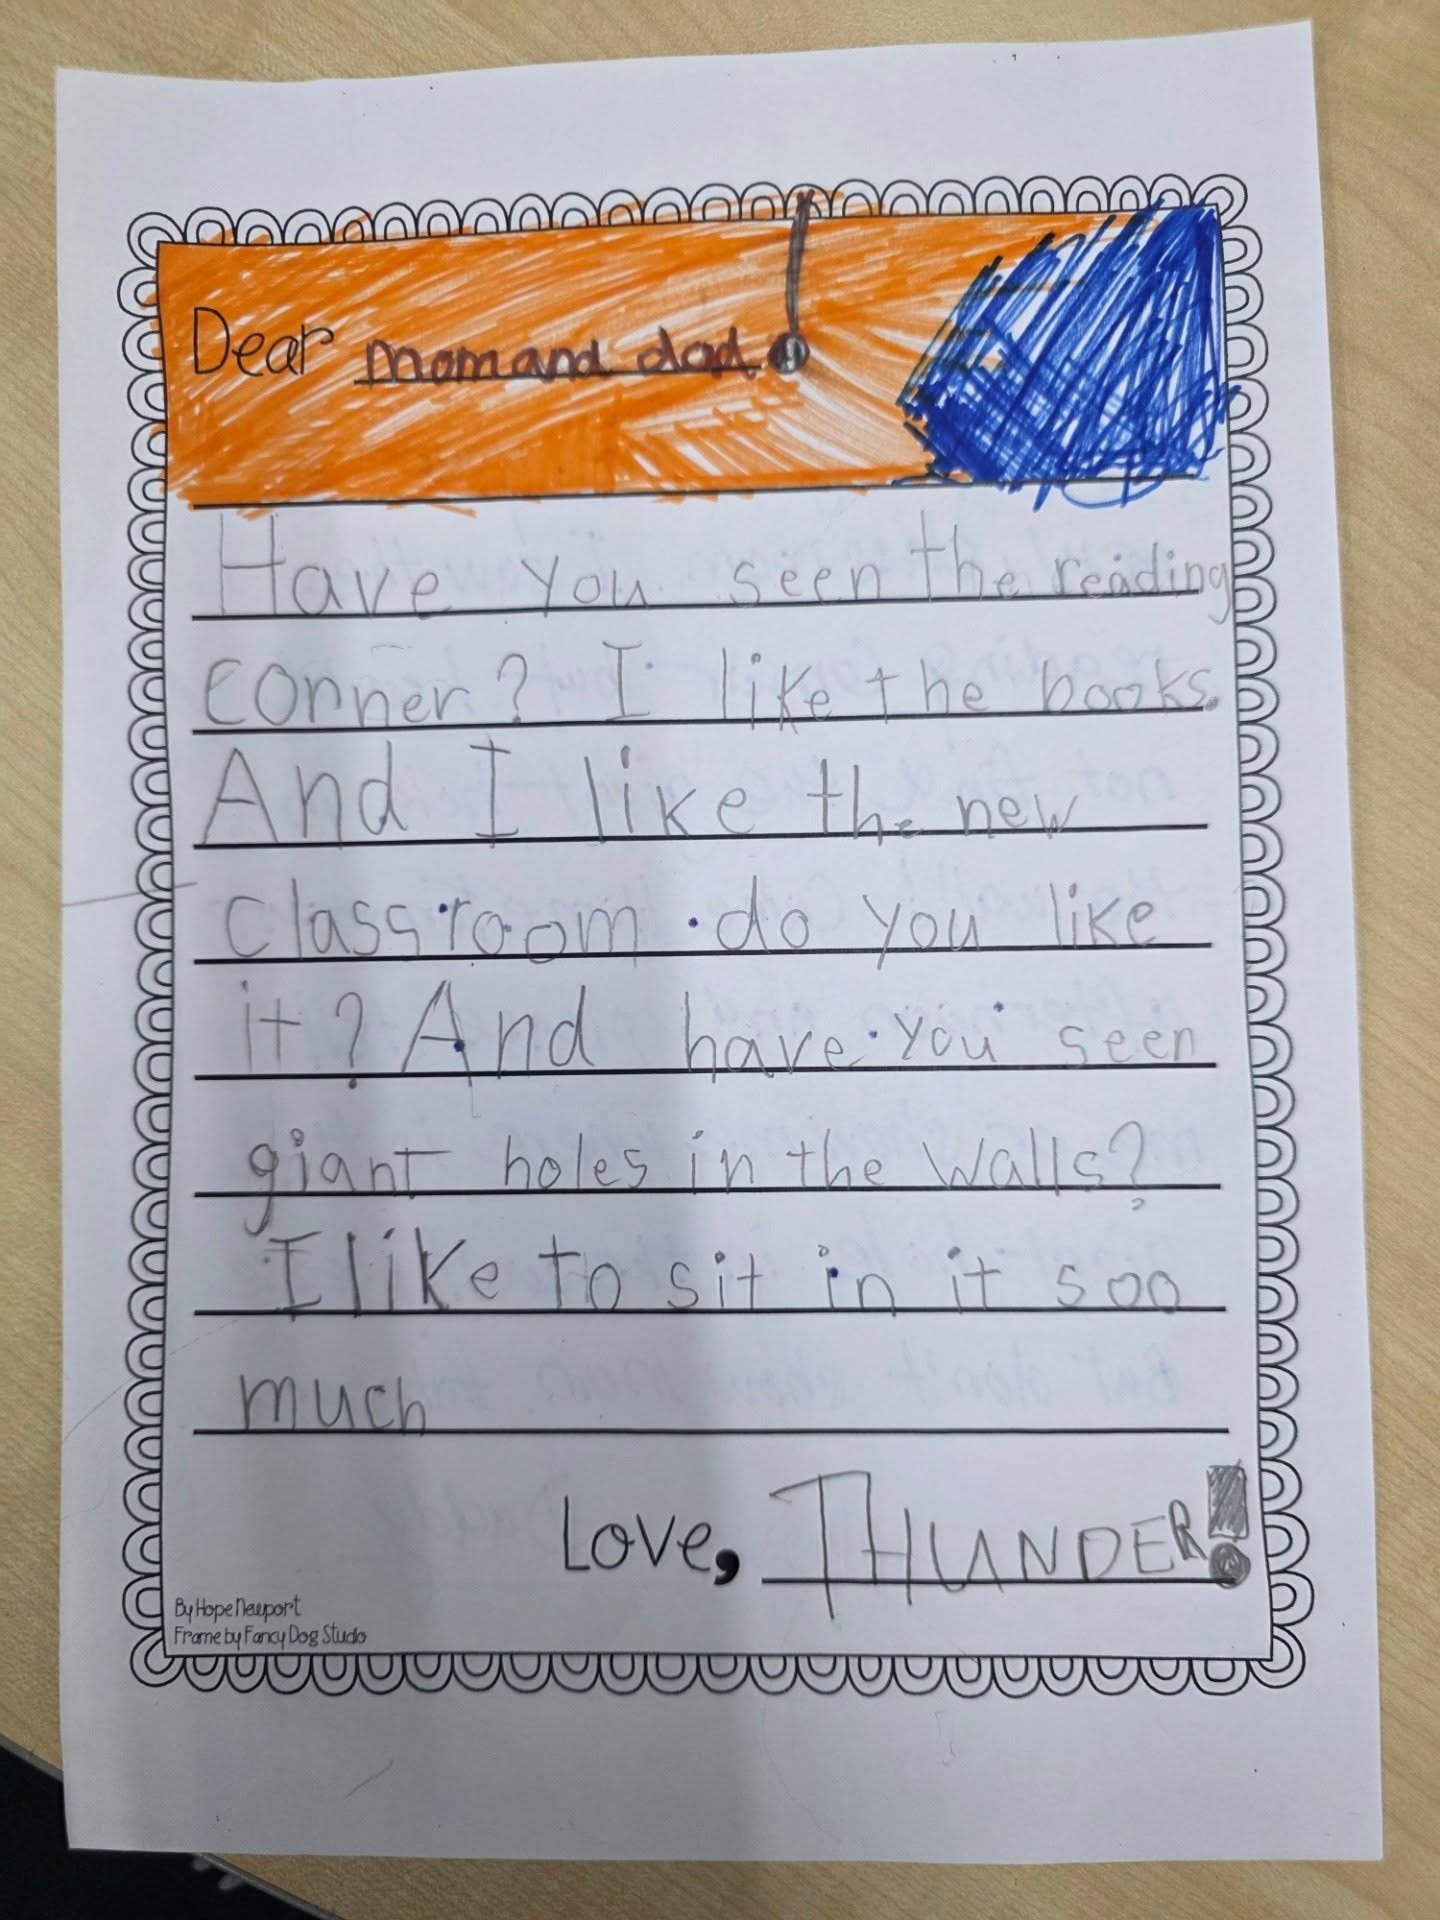 Dear mom and dad!
Have you seen the reading
corner? I like the books.
And I like the new
classroom .do you like
it? And have you seen
giant holes in the walls?
I like to sit in it soo
much
Love, THUNDER!
By Hope Newport
Frame by Fancy Dog Studo